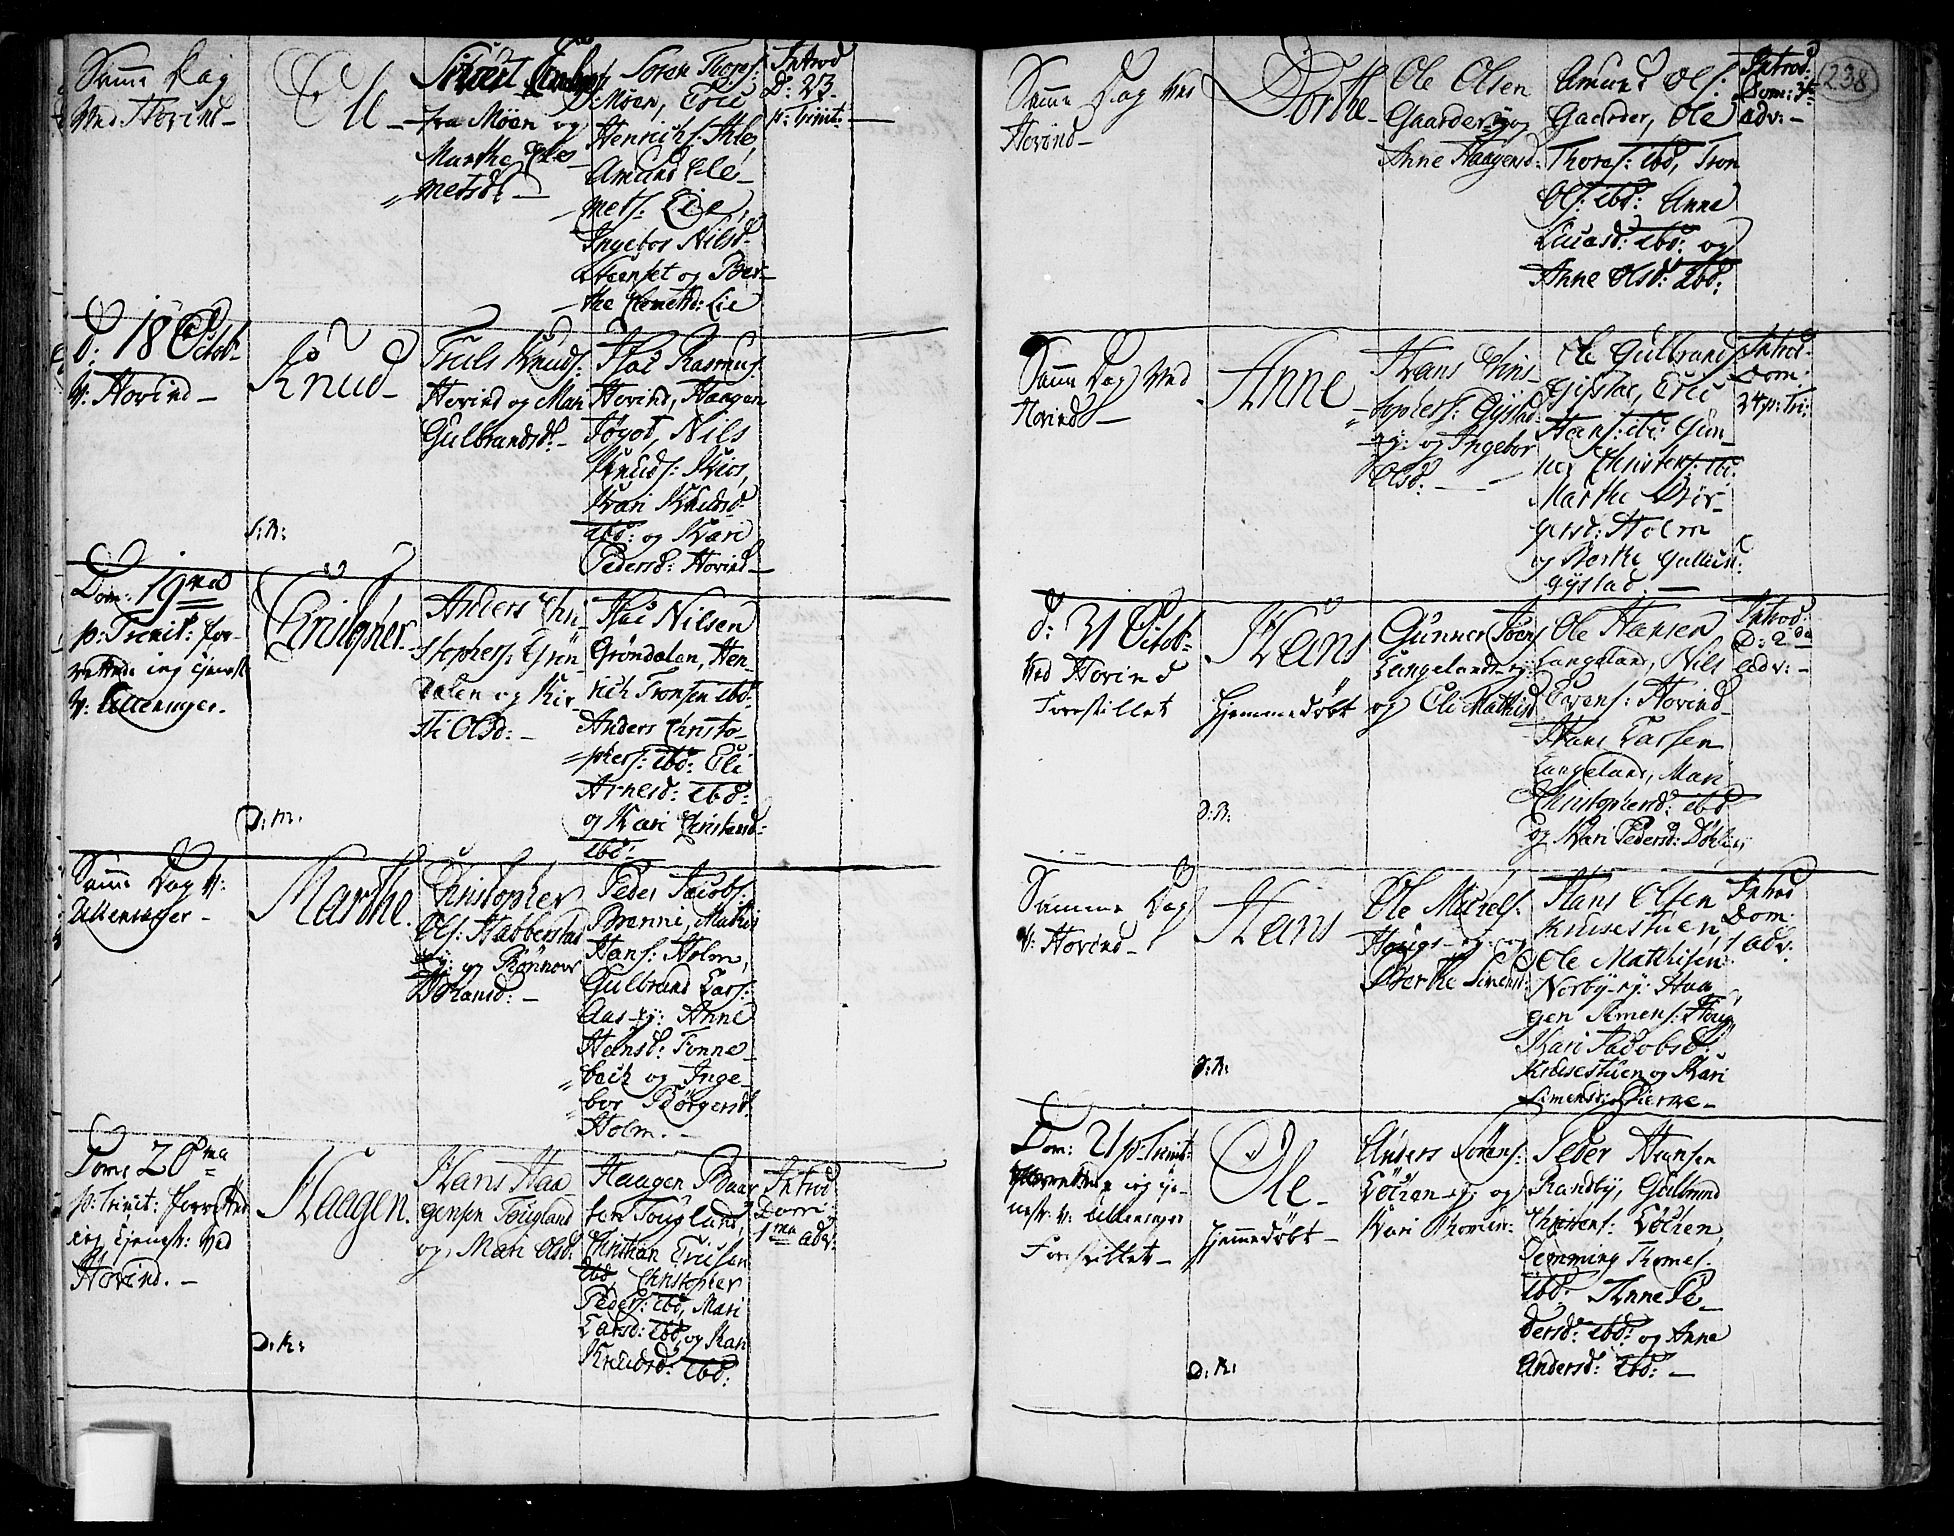 Samme Dag
Ved Hovind –
Eli –
Sivert
fra Möen og
Marthe Cle=
metsd: –
Sören Thores:
Möen, Eric
Henrichs: Ihle,
Amund Cle=
mets: Lie,
Ingebor Nilsd:
og Ber=
the Clemetsd: Lie
Introd
D: 23
p: Trinit:
d: 18 Octob:
V: Hovind –
Knud –
S: R:
Truls Knuds:
Hovind og Mari
Gulbrandsd: –
Rasmus:
Hovind, Haagen
Jögot, Nils
Knuds: Kios,
Kari Knudsd:
ibd: og Kari
Pedersd: Hovind –
Dom: 19na
p: Trinit: for=
rettede ieg tjenest
V: Ullensager. –
Christopher.
D: M.
Anders Chri
stophers: Grön
dalen og Kir=
sti Olsd: –
Nilsen
Gröndalen, Hen=
rich Tronsen ibd:
Anders Christo=
phers: ibd: Eli
Arnesd: ibd:
og Kari
ibd: –
Samme Dag V:
Ullensager –
Marthe.
Christopher
Ols: Habberstad
ej: og Rönnow
Hansd: –
Peder Jacobs:
Brenni, Mathis
Hans: Holm,
Gulbrand Lars:
Aas ej: Anne
Hansd: Tonne=
bach og Inge=
bor Börgersd:
Holm. –
Dom: 20ma
p: Trinit: forretted
ieg tjenest: Ved
Hovind. –
Haagen.
D: R:
Hans Haa
gensen Fougland
og Mari Olsd:
Haagen Baar
sen Fougland,
Christian Ericsen
ibd, Christopher
Peders: ibd, Mari
Larsd: ibd, og Kari
Knudsd: ibd:
Introd
Dom:
1ma adv:
238
Samme Dag Ved
Hovind –
Dorthe –
Ole Olsen
Gaarder ej: og
Anne Haagensd:
Amund Ols:
Gaarder, Ole
Thores: ibd, Tron
Ols: ibd: Anne
Lucasd: ibd: og
Anne Olsd: ibd:
Introd:
Dom: 3tia
adv: –
Samme Dag Ved
Hovind –
Anne
Hans Chris=
tophers: Gystad
ej: og Ingebor
Olsd: –
Ole Gulbrands:
Gystad, Eric
Hans: ibd: Gun=
ner Christens: ibd:
Marthe Bör=
gersd: Holm
og Berthe Gulbrandsd:
Gystad. –
Introd:
Dom:
24 p: Tri:
d: 31 Octob:
Ved Hovind
Forestillet
Hans
hjemmedöbt
D: R:
Gunner Ivers:
Langeland ej:
og Eli Mathisd:
Ole Hansen
Langeland, Nils
Evens: Hovind
Hans Larsen
Langeland, Mari
Christophersd: ibd
og Kari Pedersd:
Introd:
D: 2da
adv: –
Samme Dag
V: Hovind –
Hans
D: R:
Ole Michels:
Houg ej: og
Berthe Simensd:
Hans Olsen
Knusestuen,
Ole Mathisen
Norby ej: Haa
gen Simens: Houg
Kari Jacobsd:
Knusestuen og Kari
Simensd: Bierke –
Introd
Dom:
1 adv:
Dom: 21 p: Trinit:
forrettede ieg tje=
nest: V: Ullensager
Forestillet –
Ole –
hjemmedöbt –
D: R:
Anders Sörens:
Lötzen ej: og
Kari
Peder Hansen
Randby, Gulbrand
Christens: Lötzen,
Lemming Thomes:
ibd: Anne Pe=
dersd: ibd: og Anne
Andersd: ibd: –